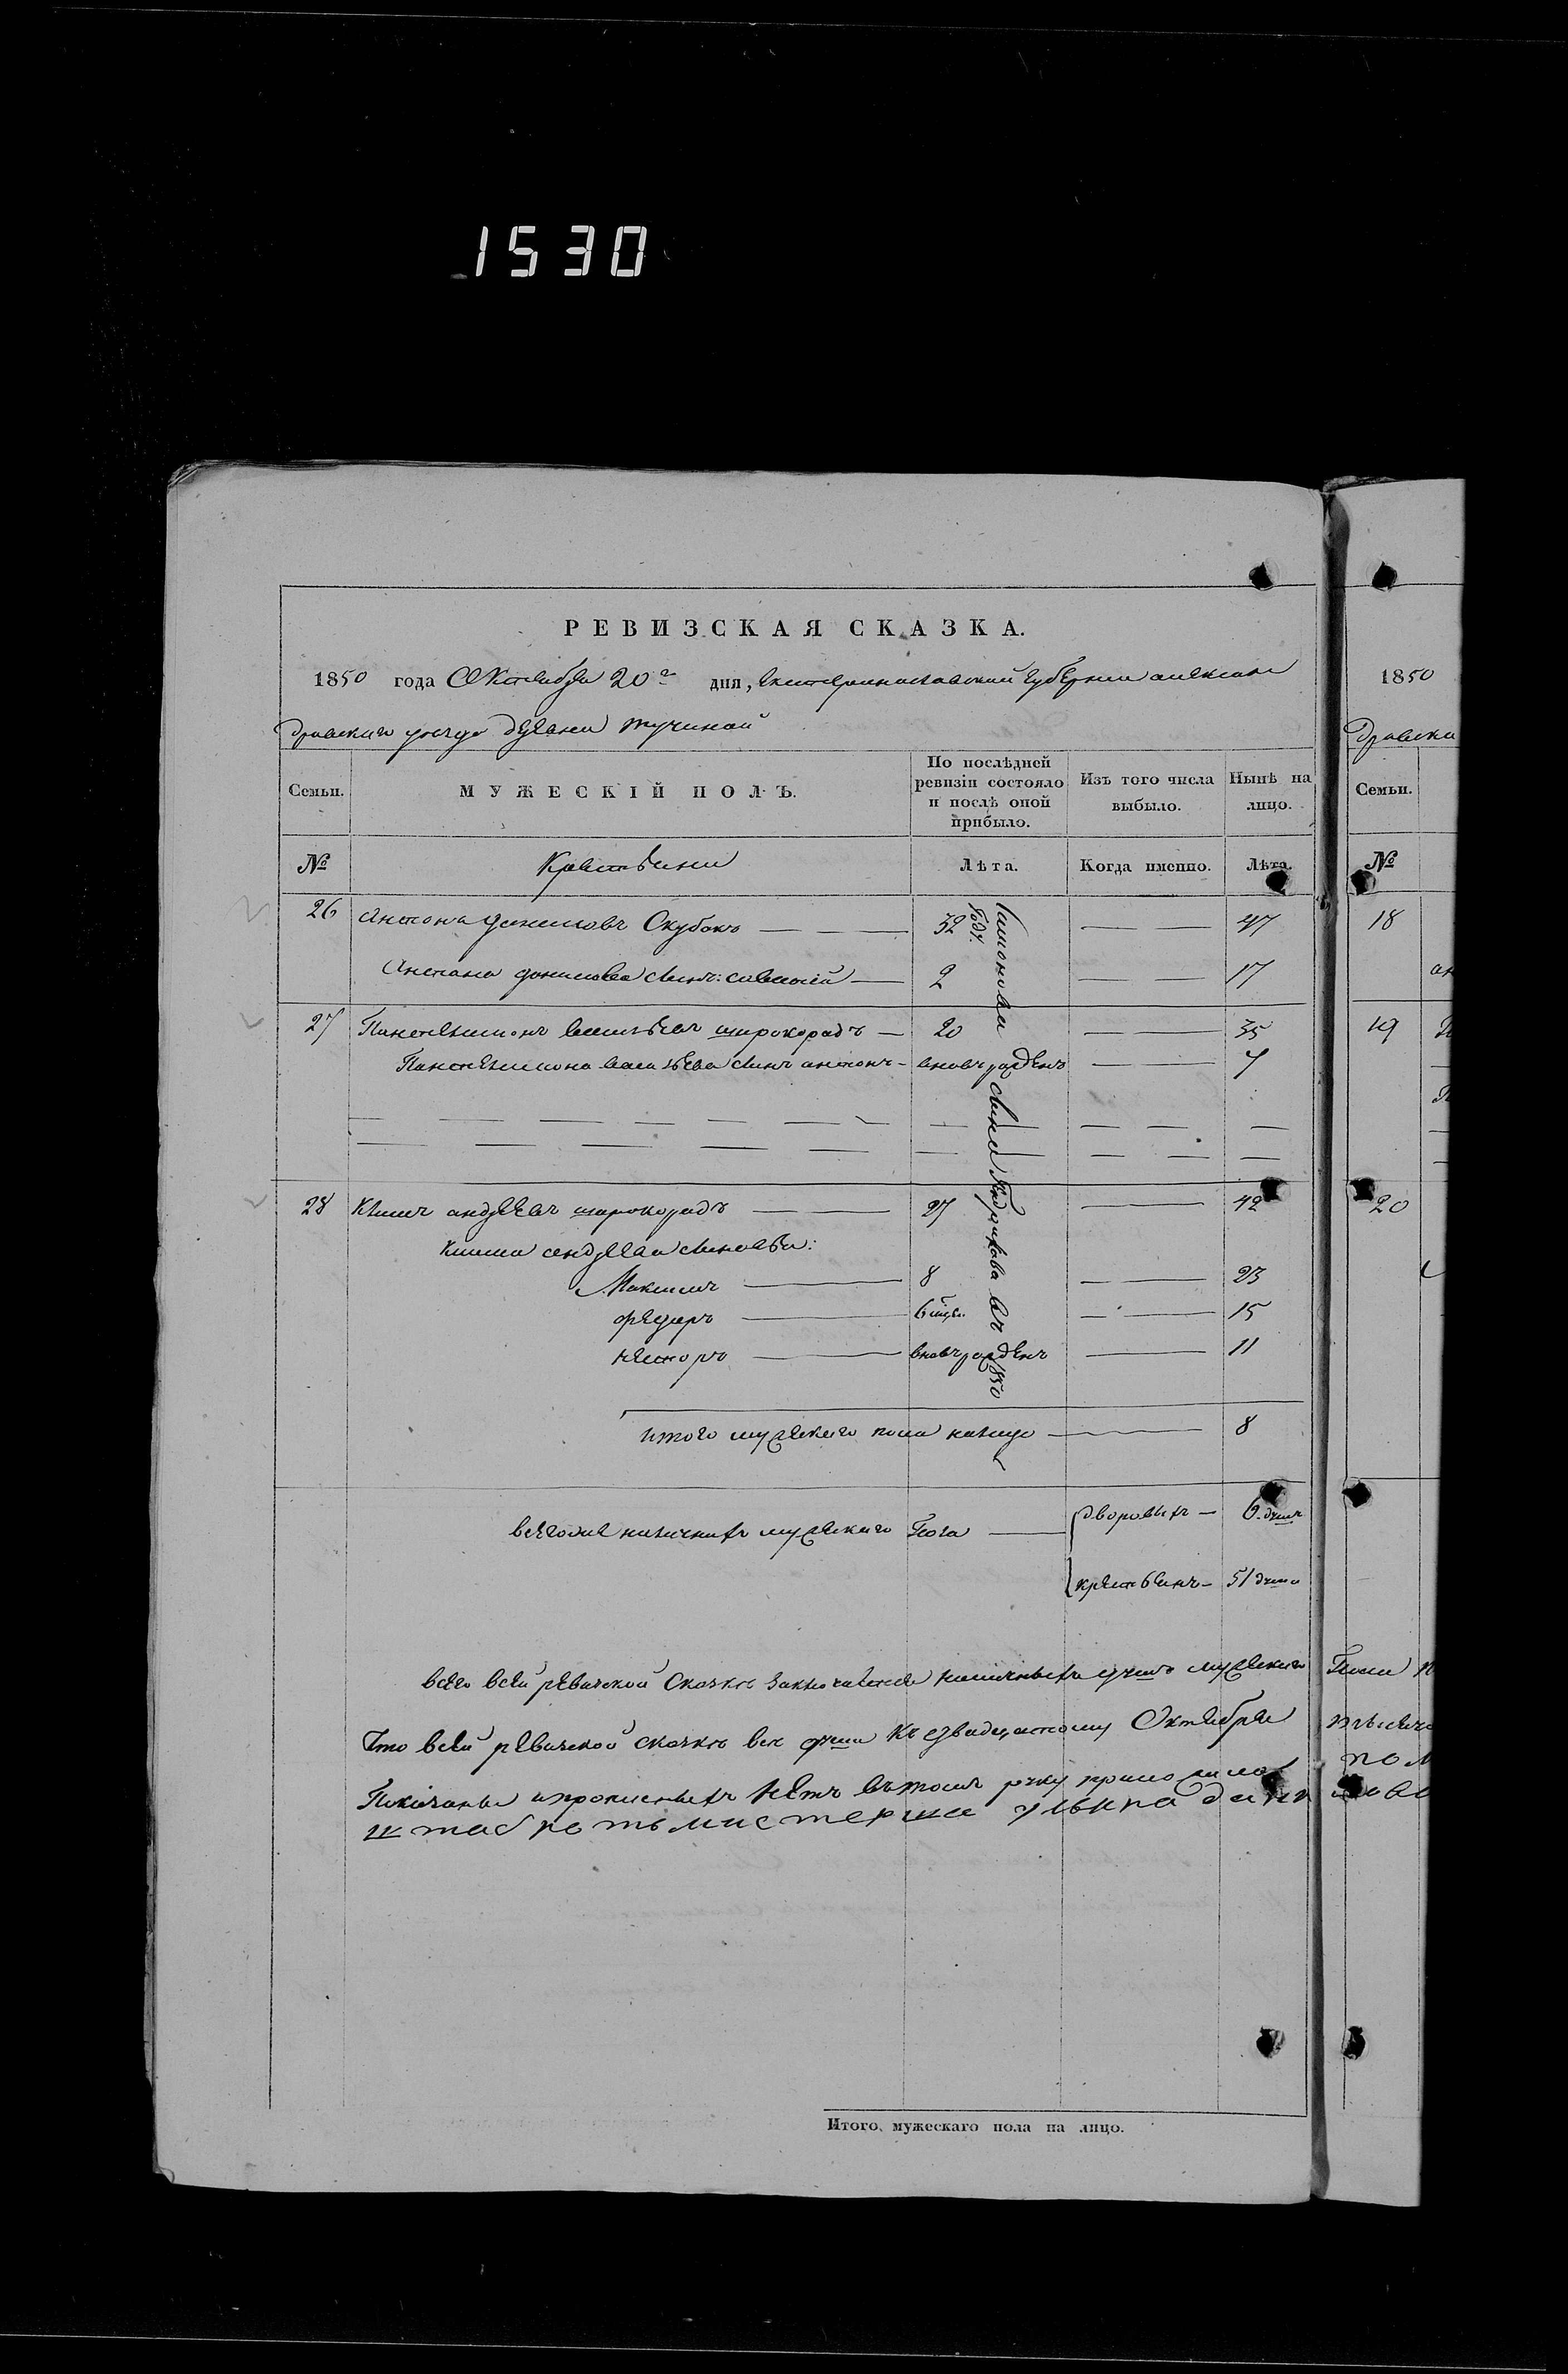 1530
РЕВИЗСКАЯ СКАЗКА.
1850 года Октября 20го дня, Екатеринославской губернии алексан
дровскаго уезда деревни тучиной
Семьи.
МУЖЕСКІЙ ПОЛЪ.
По послѣдней ревизіи состояло и послѣ оной прибыло.
Изъ того числа выбыло.
Нынѣ на лицо.
№
Крестьяни
Лѣта.
Когда именно.
Лѣта.
26 Антонъ даниловъ Скубакъ — — 32 — — 47
Антона данилова сынъ: савелій — 2 — — 17
27 Пантелимонъ васильевъ широкорадъ — 20 — 35
Пантелимона васильева сынъ антонъ - вновъ рожденъ — — 7
28 Климъ андреевъ широкорадъ — — 27 — 42
Клима андреева сыновья:
Максимъ — 8 — — 23
федоръ — — — 15
несторъ — вновъ рожденъ — 11
въ 1850
итого мужескаго пола налицо — — 8
всего же наличныхъ мужескаго Пола — дворовыхъ — 6 душъ
крестьянъ — 51 душа
всего всей ревизской Сказке заключается наличныхъ душъ мужескаго
Что всей ревизской сказке все души къ двадцатому Октября
Показаны и прописныхъ нетъ въ томъ руку приложила
штабротьмистерша
Итого мужескаго пола на лицо.
1850
дровска
Семьи.
№
18
19
20
Пола